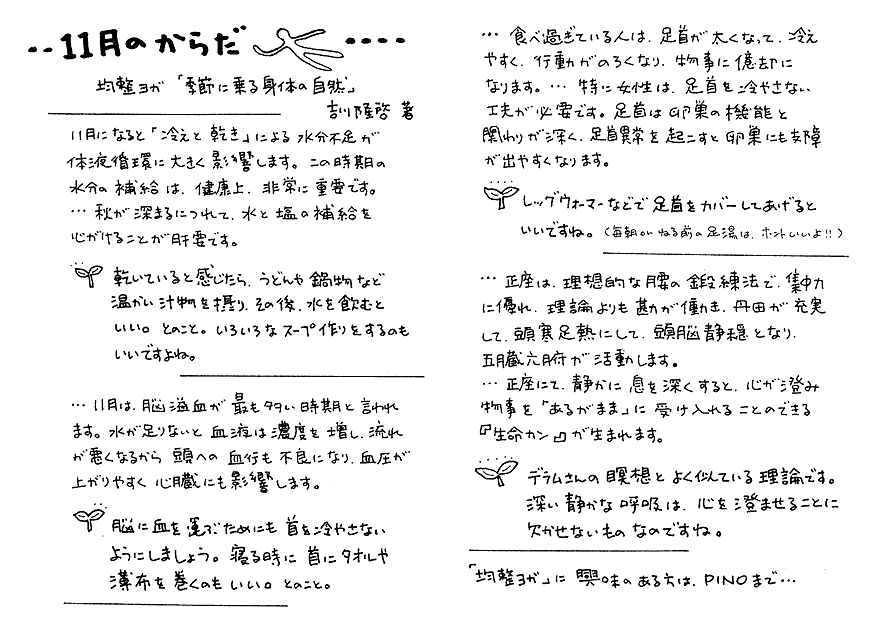 ‥11月のからだ‥‥
均整ヨガ「季節に乗る身体の自然」
吉川隆啓 著
11月になると「冷えと乾き」による水分不足が
体液循環に大きく影響します。この時期の
水分の補給は、健康上、非常に重要です。
… 秋が深まるにつれて、水と塩の補給を
心がけることが肝要です。
乾いていると感じたら、うどんや鍋物など
温かい汁物を摂り、その後、水を飲むと
いい。とのこと。いろいろなスープ作りをするのも
いいですよね。
… 11月は、脳溢血が最も多い時期と言われ
ます。水が足りないと血液は濃度を増し、流れ
が悪くなるから頭への血行も不良になり、血圧が
上がりやすく心臓にも影響します。
脳に血を運ぶためにも首を冷やさない
ようにしましょう。寝る時に首にタオルや
薄布を巻くのもいい。とのこと。
… 食べ過ぎている人は、足首が太くなって、冷え
やすく、行動がのろくなり、物事に億劫に
なります。… 特に女性は、足首を冷やさない
工夫が必要です。足首は卵巣の機能と
関わりが深く、足首異常を起こすと卵巣にも支障
が出やすくなります。
レッグウォーマーなどで足首をカバーしてあげると
いいですね。(毎朝orねる前の足湯は、ホントいいよ!!)
… 正座は、理想的な腰の鍛練法で、集中力
に優れ、理論よりも勘が働き、丹田が充実
して、頭寒足熱にして、頭脳静穏となり、
五臓六腑が活動します。
… 正座にて、静かに息を深くすると、心が澄み
物事を「あるがまま」に受け入れることのできる
『生命カン』が生まれます。
デラムさんの瞑想とよく似ている理論です。
深い静かな呼吸は、心を澄ませることに
欠かせないものなのですね。
「均整ヨガ」に興味のある方は、PINOまで…